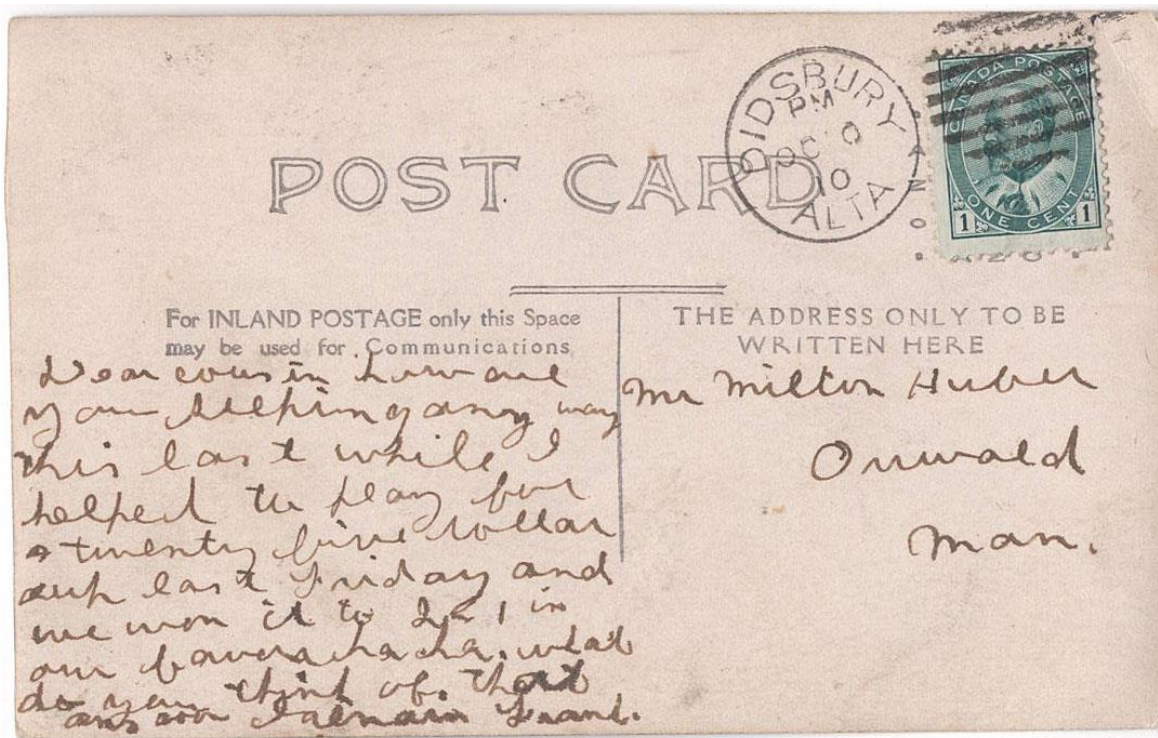 DIDSBURY
PM
OC 0
10
ALTA
CANADA POSTAGE
1 ONE CENT 1
POST CARD
For INLAND POSTAGE only this Space
may be used for Communications
THE ADDRESS ONLY TO BE
WRITTEN HERE
Dear cousin how are
you any way
this last while I
helped to play for
a twenty five dollar
cup last Friday and
we won it to 1 in
our favor ha ha. what
do you think of that
ans soon I remain Frank.
Mr Milton Huber
Onwald
Man.